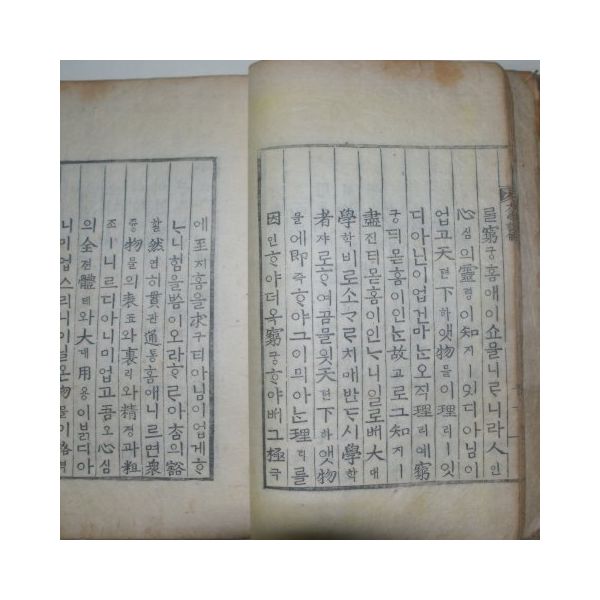 를窮궁홈애이쇼믈니ᄅᆞ니라人인
心심의靈령이知지ㅣ잇디아님이
업고天텬下하앳物믈이理리ㅣ잇
디아닌이업건마ᄂᆞᆫ오직理리예窮
궁티몯홈이인ᄂᆞᆫ故고로그知지ㅣ
盡진티몯홈이인ᄂᆞ니일로ᄡᅥ大대
學학비로소ᄀᆞᄅᆞ치매반ᄃᆞ시學학
者쟈로ᄒᆞ여곰믈읫天텬下하앳物
믈에即즉ᄒᆞ야그이믜아ᄂᆞᆫ理리를
因인ᄒᆞ야더옥窮궁ᄒᆞ야ᄡᅥ그極극
에至지홈을求구티아님이업게ᄒᆞ
ᄂᆞ니힘을ᄡᅳᆷ이오라ᄒᆞᄅᆞ아ᄎᆞᆷ의豁
활然연히貫관通통홈애니르면衆
즁物믈의表표와裏리와精졍과粗
조ㅣ니르디아니미업고吾오心심
의全젼體톄와大대用용이ᄇᆞᆰ디아
니미업스리니이닐온物믈이格격